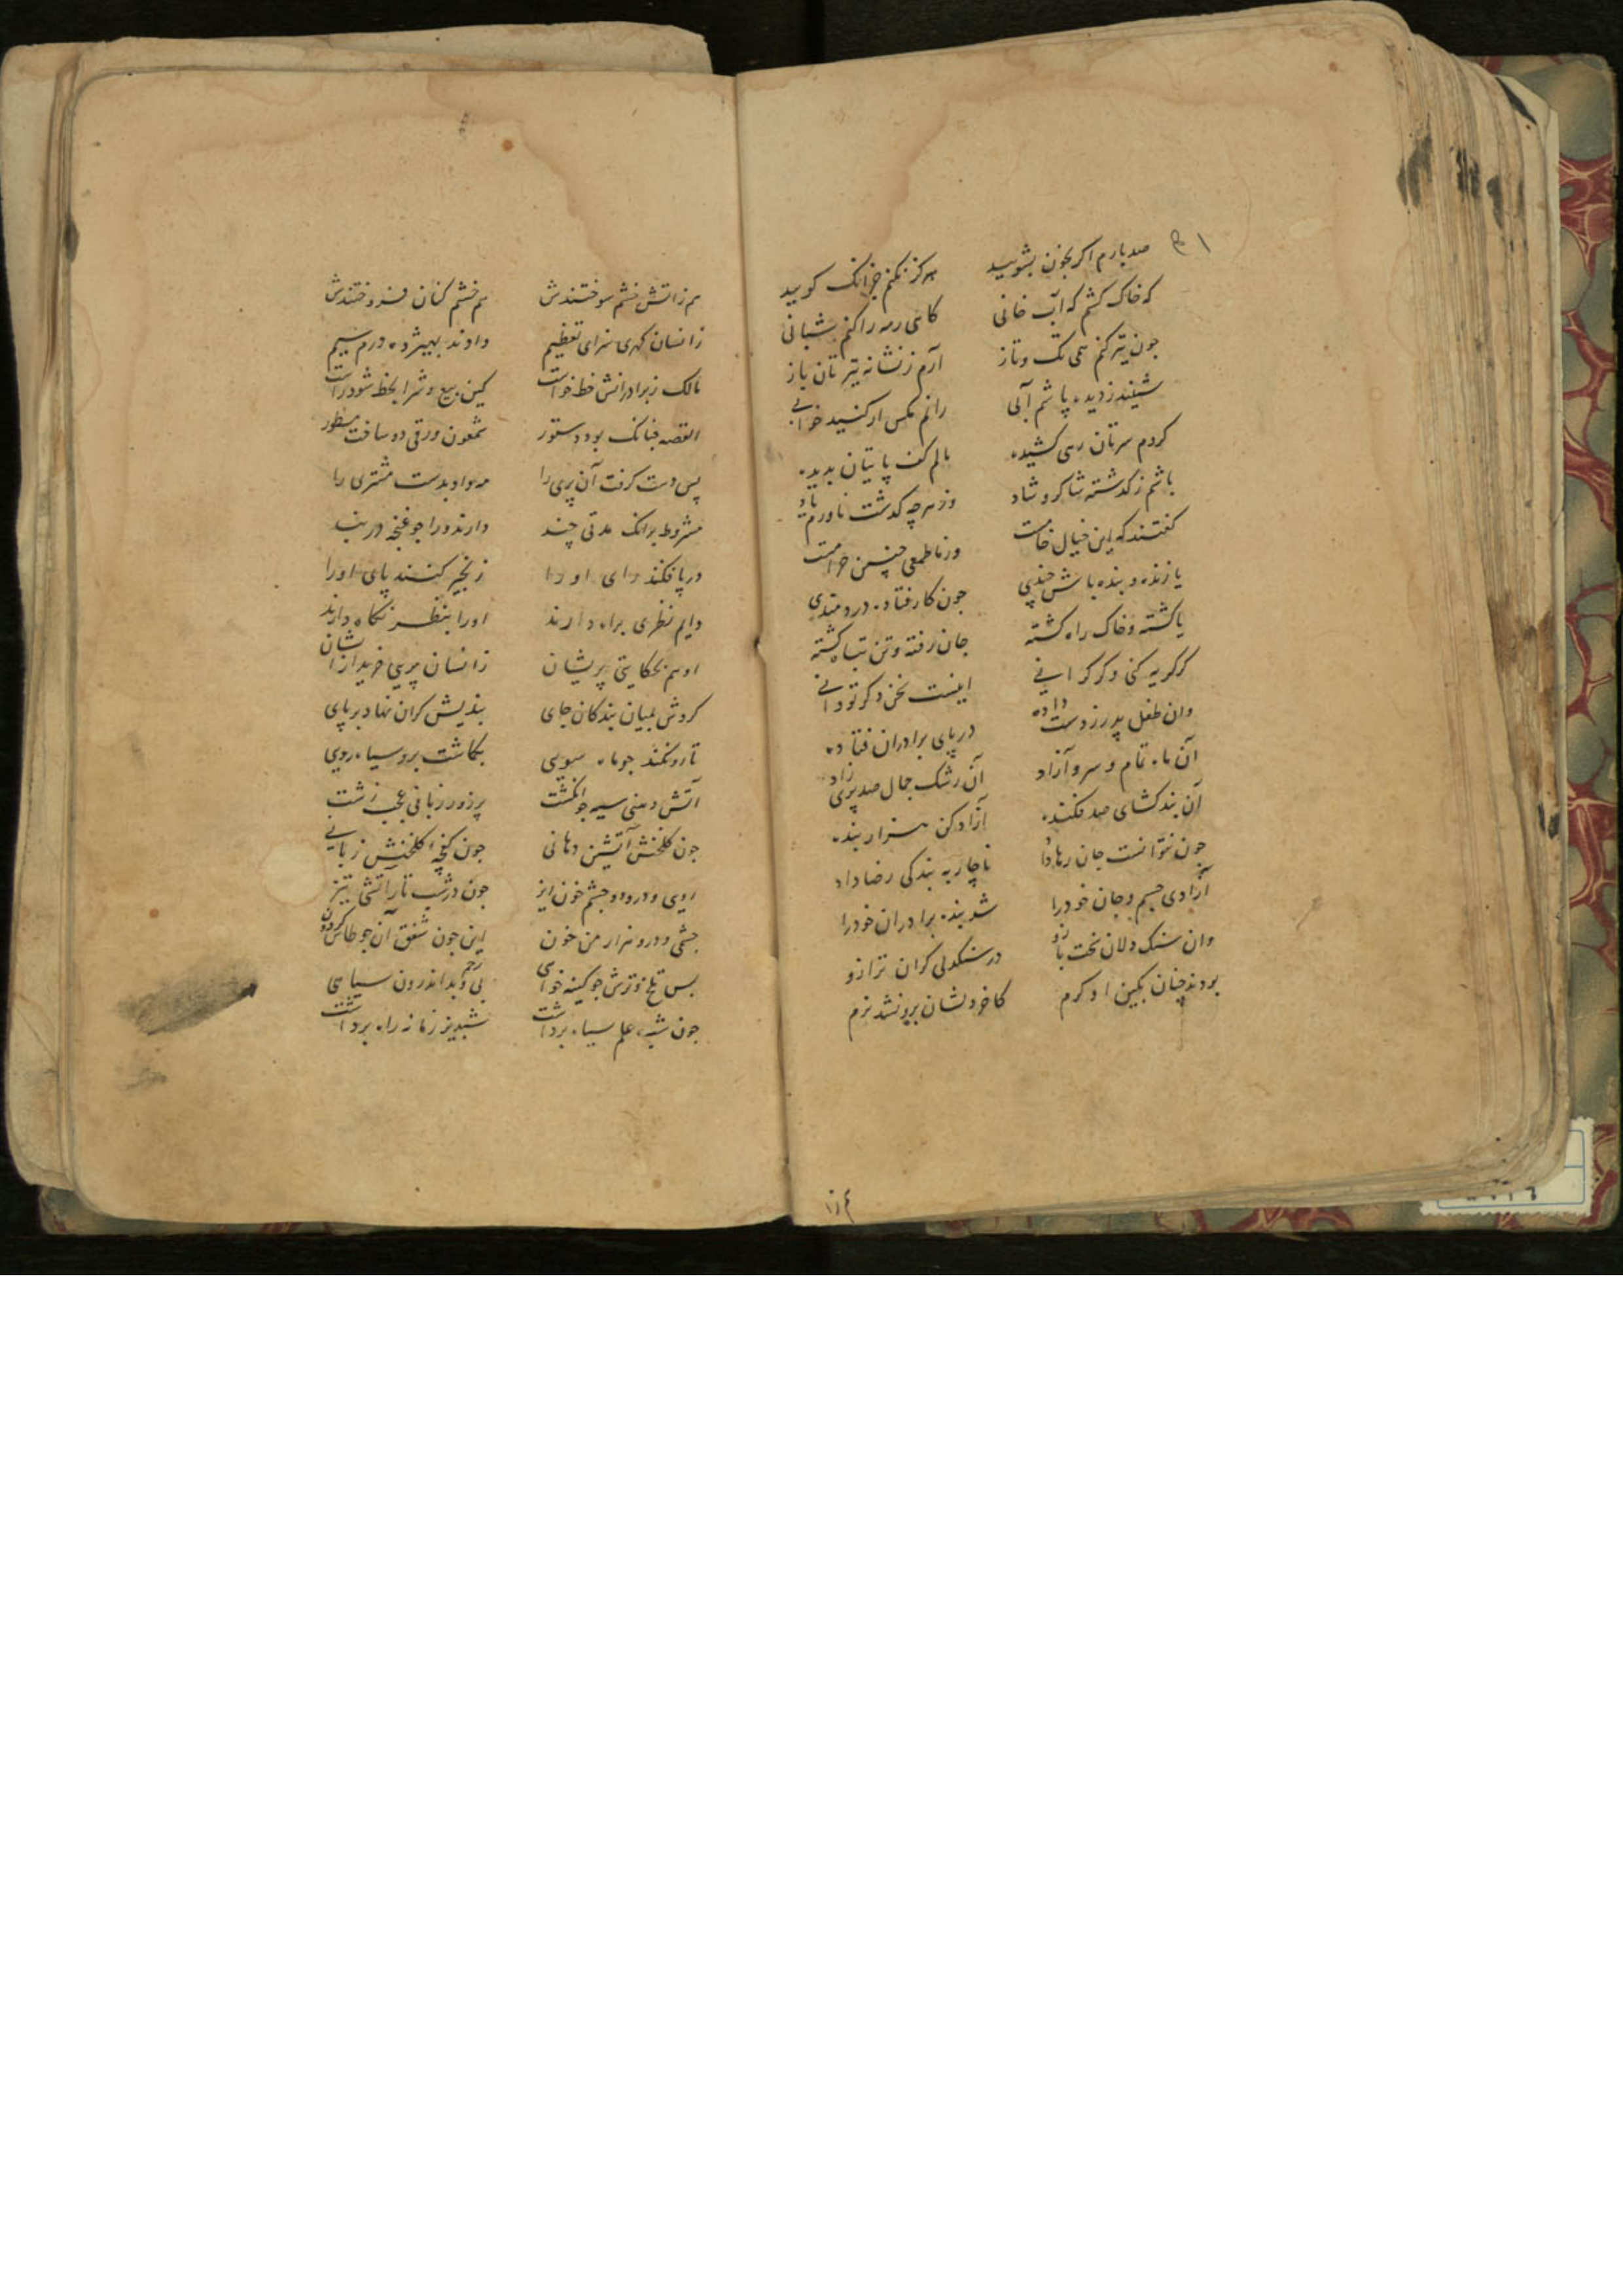 صد بارم اگر بخون بشویید هرگز نکنم جز انک گویید
که خاک کشم که آب خانی گاهی رمه را کنم شبانی
چون تیر کنم همی تک و تاز آرم ز نشانه تیرتان باز
شینند ز دیده پاشم آبی رانم مکس ار کنید خوابی
کردم سرتان رهی کشیده مالم کف پایتان بدیده
باشم ز گذشته شاکر و شاد وز هرچه گذشت ناورم یاد
گفتند که این خیال خامست وز ما طمعی چنین حرامست
یا زنده و بنده باش چندی چون کار فتاده دردمندی
یا کشته و خاک راه گشته جان رفته و تن تباه گشته
گر گریه کنی و گر گرانی اینست سخن دگر تو دانی
وان طفل پدر ز دست داده در پای برادران فتاده
آن ماه تمام و سرو آزاد آن رشک جمال صد پری زاد
آن بند گشای صد فکنده آزاد کن هزار بنده
چون نتوانست جان رها داد ناچار به بندگی رضا داد
آزادی جسم و جان خود را شد بنده برادران خود را
وان سنک دلان سخت بازو در سنکدلی گران ترازو
بودند چنان بکین او گرم کاخر دلشان برو نشد نرم
هم ز آتش خشم سوختندش هم خشم کنان فروختندش
زانسان گهری سزای تعظیم دادند بهیژده درم سیم
مالک ز برادرانش خط خواست کین بیع و شرا بخط شود راست
القصه چنانک بود دستور شمعون ورقی دو ساخت مسطور
پس دست گرفت آن پری را داد بدست مشتری را
مشروط برانک مدتی چند دارند ورا چو غنچه در بند
در پا فکند ای او را زنجیر کنند پای او را
دایم نظری براه دارند او را بنظر نگاه دارند
او هم بحکایتی پریشان زانسان پریی خرید ازیشان
کردش بمیان بندگان جای بندیش گران نهاد بر پای
تا رو نکند چو ماه سویی بگماشت برو سیاه رویی
آتش دهنی سیه چو انگشت پرزور زبانی عجب زشت
چون گلخنش آتشین دهانی چون کفچه گلخنش زبانی
رویی و درو دو چشم خون ریز چون در شب تار آتشی تیز
چشمی و درو هزار من خون این چون شفق آن چو طاس گردون
بس تلخ و ترش چو کینه خواهی بی رحم و بد اندرون سیاهی
چون شب علم سیاه برداشت شبدیز زمانه راه برداشت